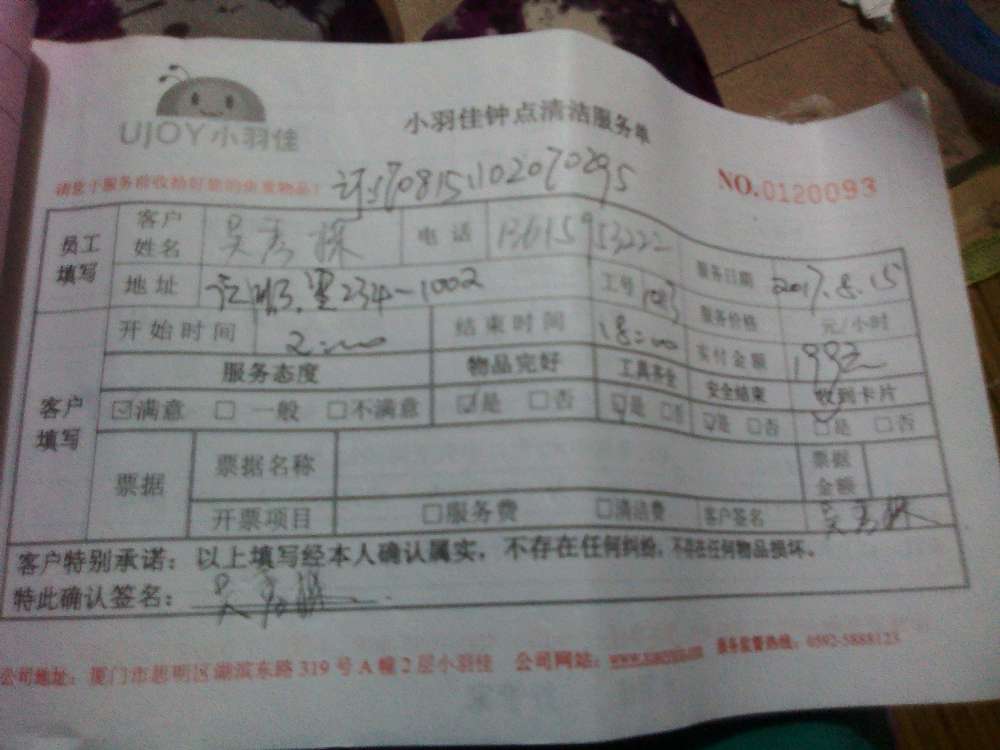 UJOY小羽佳
小羽佳钟点清洁服务单
NO.0120093
员工填写 客户姓名 吴秀 电话 13615953222 服务日期 2017.8.15
地址 234-1002 工号
客户填写 开始时间 2:00 结束时间 18:00 服务价格 元/小时
实付金额 199元
服务态度 物品完好 工具齐全 安全结束 收到卡片
☑满意 □一般 □不满意 ☑是 □否 ☑是 □否 ☑是 □否 ☑是 □否
票据 票据名称 票据金额
开票项目 □服务费 □清洁费 客户签名 吴秀
客户特别承诺：以上填写经本人确认属实，不存在任何纠纷，不存在任何物品损坏。
特此确认签名：吴秀
公司地址：厦门市思明区湖滨东路319号A幢2层小羽佳 公司网站： 服务监督热线：0592-5888123